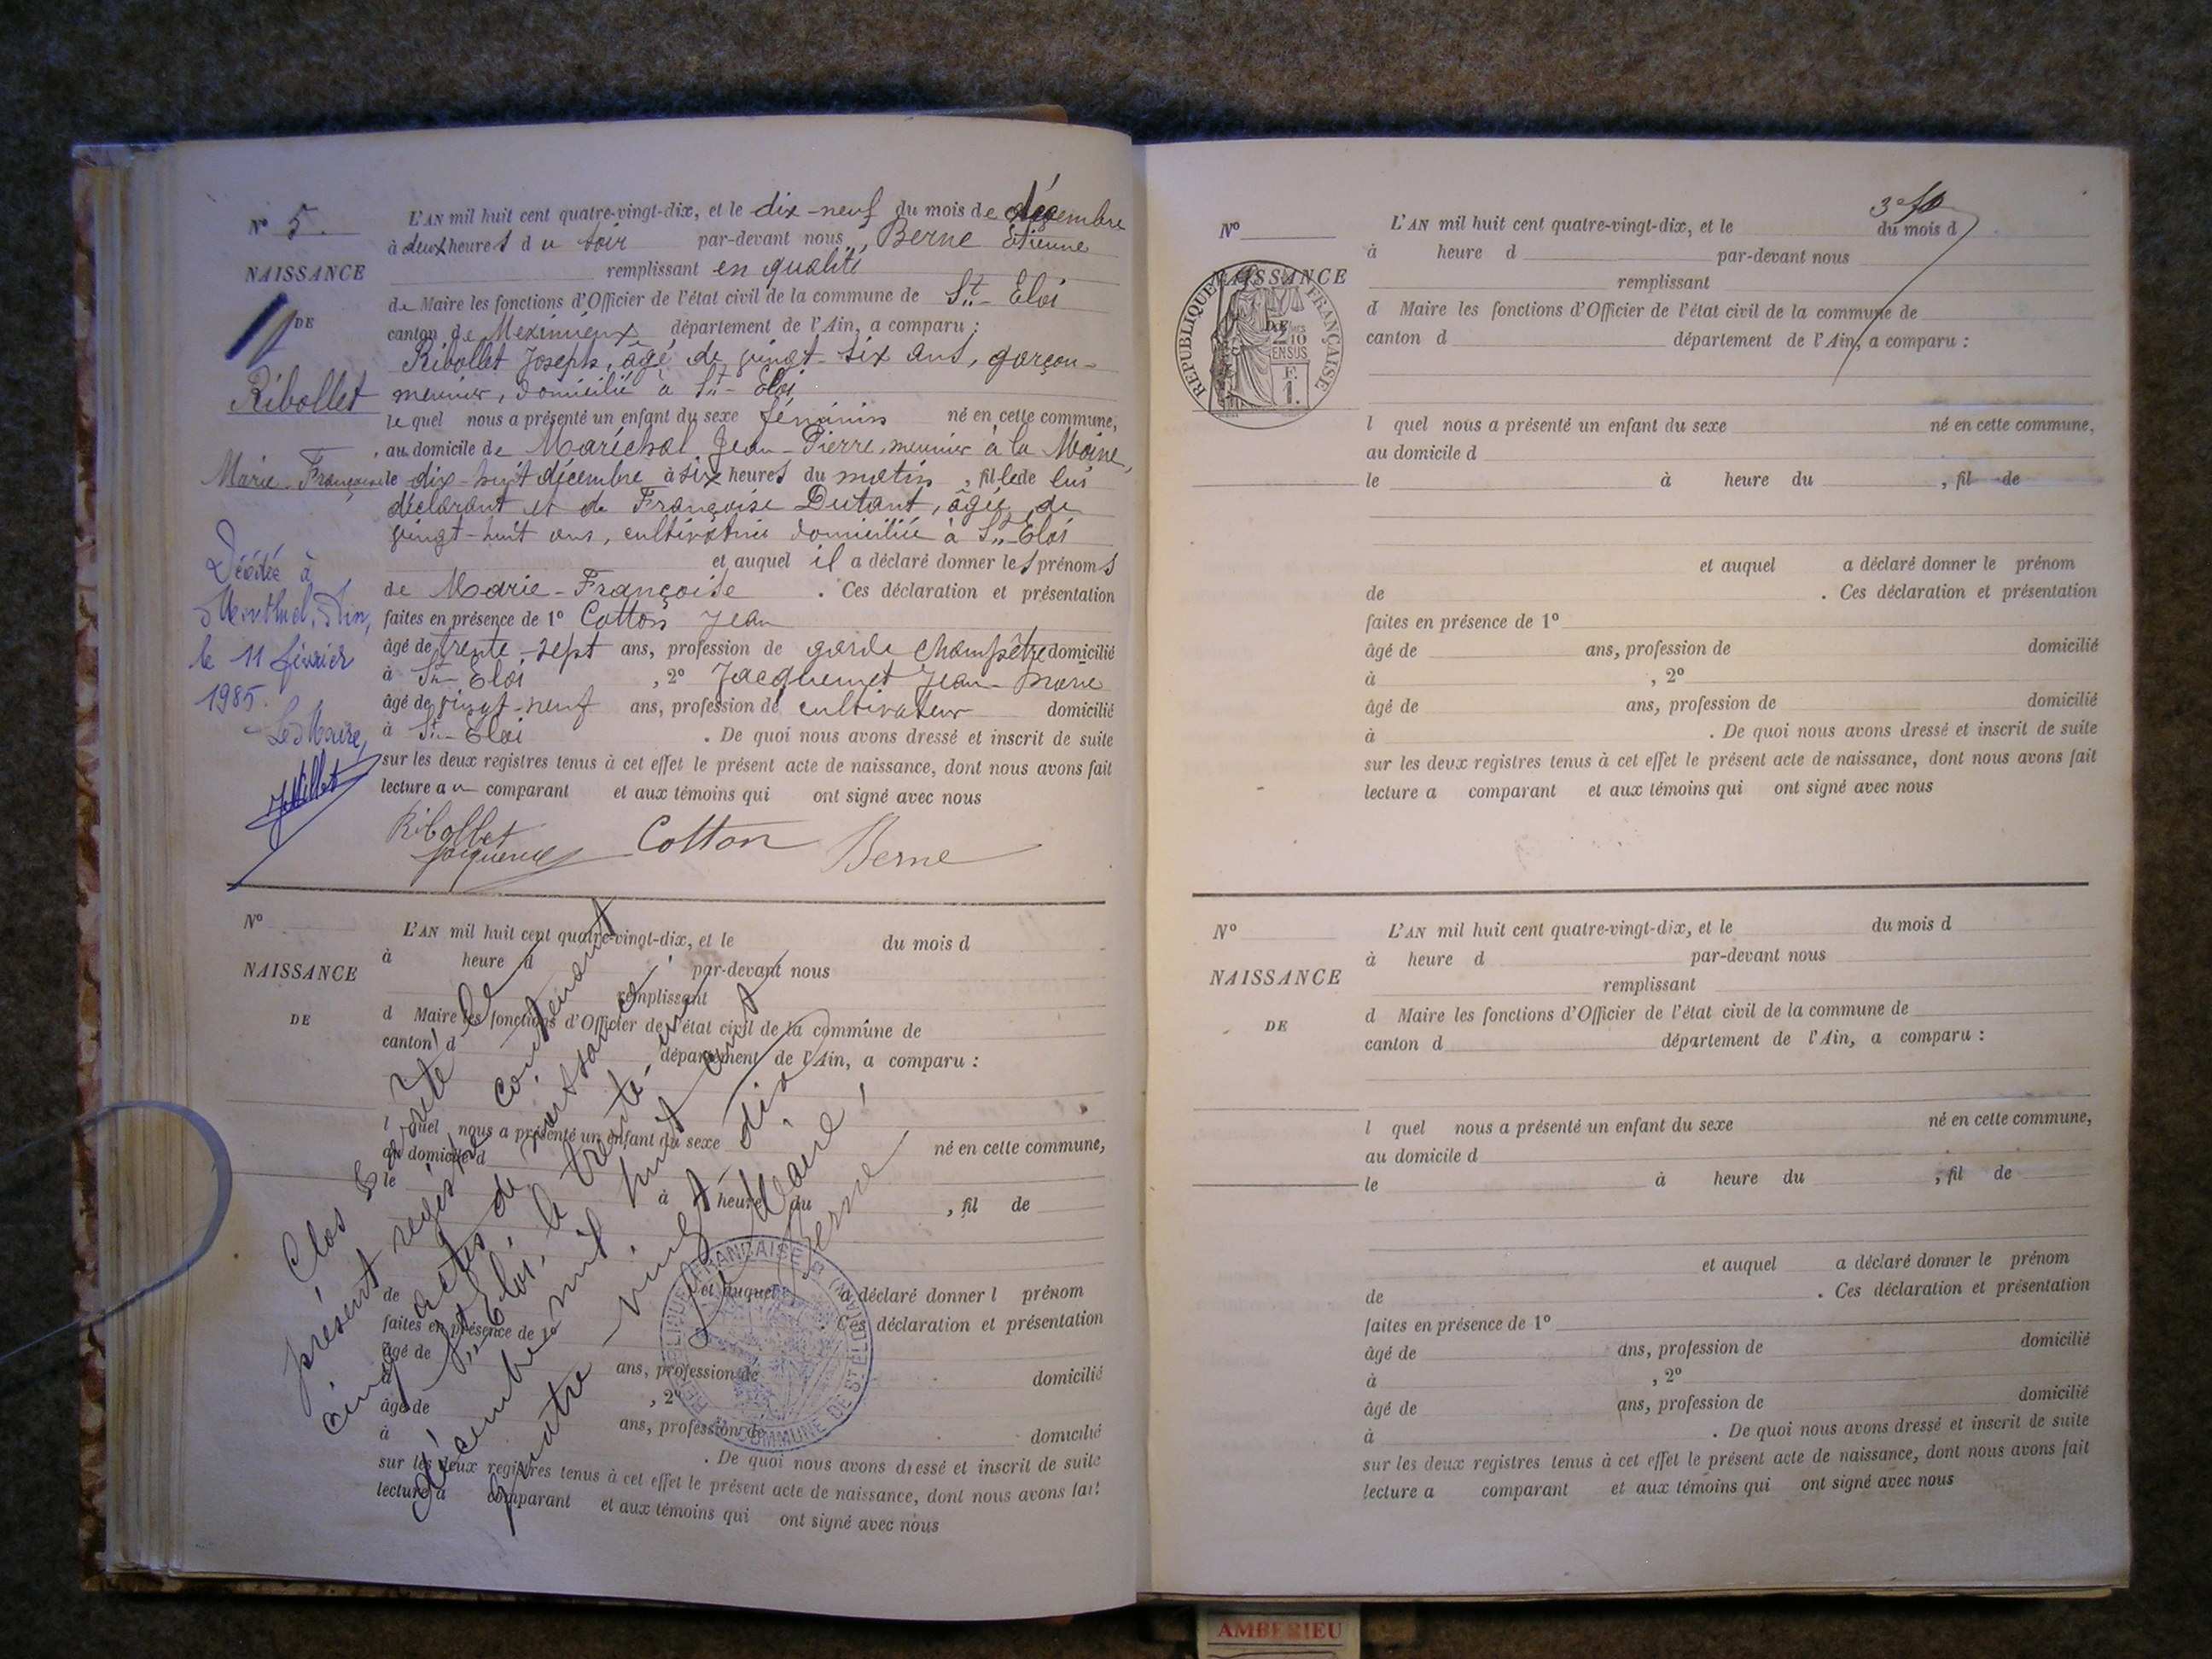 N° 5.
NAISSANCE
DE
Ribollet
Marie-Françoise
Décédée à
Montluel, Ain,
le 11 février
1985.
Le Maire,
L'AN mil huit cent quatre-vingt-dix, et le dix-neuf du mois de décembre
à deux heures du soir par-devant nous, Berne Etienne
remplissant en qualité
de Maire les fonctions d'Officier de l'état civil de la commune de St-Eloi
canton de Meximieux, département de l'Ain, a comparu :
Ribollet Joseph, âgé de vingt-six ans, garçon-
meunier, domicilié à St-Eloi
lequel nous a présenté un enfant du sexe féminin né en cette commune,
au domicile de Maréchal Jean-Pierre, meunier à la Moine,
le dix-huit décembre à six heures du matin, fille de lui
déclarant et de Françoise Dutant, âgée de
vingt-huit ans, cultivatrice domiciliée à St-Eloi
et auquel il a déclaré donner les prénoms
de Marie-Françoise. Ces déclaration et présentation
faites en présence de 1° Cotton Jean
âgé de trente-sept ans, profession de garde champêtre domicilié
à St-Eloi, 2° Jacquemet Jean-Marie
âgé de vingt-neuf ans, profession de cultivateur domicilié
à St-Eloi. De quoi nous avons dressé et inscrit de suite
sur les deux registres tenus à cet effet le présent acte de naissance, dont nous avons fait
lecture au comparant et aux témoins qui ont signé avec nous
Ribollet Cotton Berne
Jacquemet
N°
NAISSANCE
DE
L'AN mil huit cent quatre-vingt-dix, et le du mois d
à heure d par-devant nous
remplissant
d Maire les fonctions d'Officier de l'état civil de la commune de
canton d département de l'Ain, a comparu :
l quel nous a présenté un enfant du sexe né en cette commune,
au domicile d
le à heure du , fil de
et auquel a déclaré donner l prénom
de . Ces déclaration et présentation
faites en présence de 1°
âgé de ans, profession de domicilié
à , 2°
âgé de ans, profession de domicilié
à . De quoi nous avons dressé et inscrit de suite
sur les deux registres tenus à cet effet le présent acte de naissance, dont nous avons fait
lecture a comparant et aux témoins qui ont signé avec nous
Clos & arrêté le
présent registre contenant
cinq actes de naissance
à St-Eloi, le trente-un
décembre mil huit cent
quatre-vingt-dix
Le Maire,
Berne
REPUBLIQUE FRANÇAISE
COMMUNE DE ST ELOI (AIN)
3e fo
N°
NAISSANCE
DE
REPUBLIQUE FRANÇAISE
L'AN mil huit cent quatre-vingt-dix, et le du mois d
à heure d par-devant nous
remplissant
d Maire les fonctions d'Officier de l'état civil de la commune de
canton d département de l'Ain, a comparu :
l quel nous a présenté un enfant du sexe né en cette commune,
au domicile d
le à heure du , fil de
et auquel a déclaré donner le prénom
de . Ces déclaration et présentation
faites en présence de 1°
âgé de ans, profession de domicilié
à , 2°
âgé de ans, profession de domicilié
à . De quoi nous avons dressé et inscrit de suite
sur les deux registres tenus à cet effet le présent acte de naissance, dont nous avons fait
lecture a comparant et aux témoins qui ont signé avec nous
N°
NAISSANCE
DE
L'AN mil huit cent quatre-vingt-dix, et le du mois d
à heure d par-devant nous
remplissant
d Maire les fonctions d'Officier de l'état civil de la commune de
canton d département de l'Ain, a comparu :
l quel nous a présenté un enfant du sexe né en cette commune,
au domicile d
le à heure du , fil de
et auquel a déclaré donner le prénom
de . Ces déclaration et présentation
faites en présence de 1°
âgé de ans, profession de domicilié
à , 2°
âgé de ans, profession de domicilié
à . De quoi nous avons dressé et inscrit de suite
sur les deux registres tenus à cet effet le présent acte de naissance, dont nous avons fait
lecture a comparant et aux témoins qui ont signé avec nous
AMBERIEU